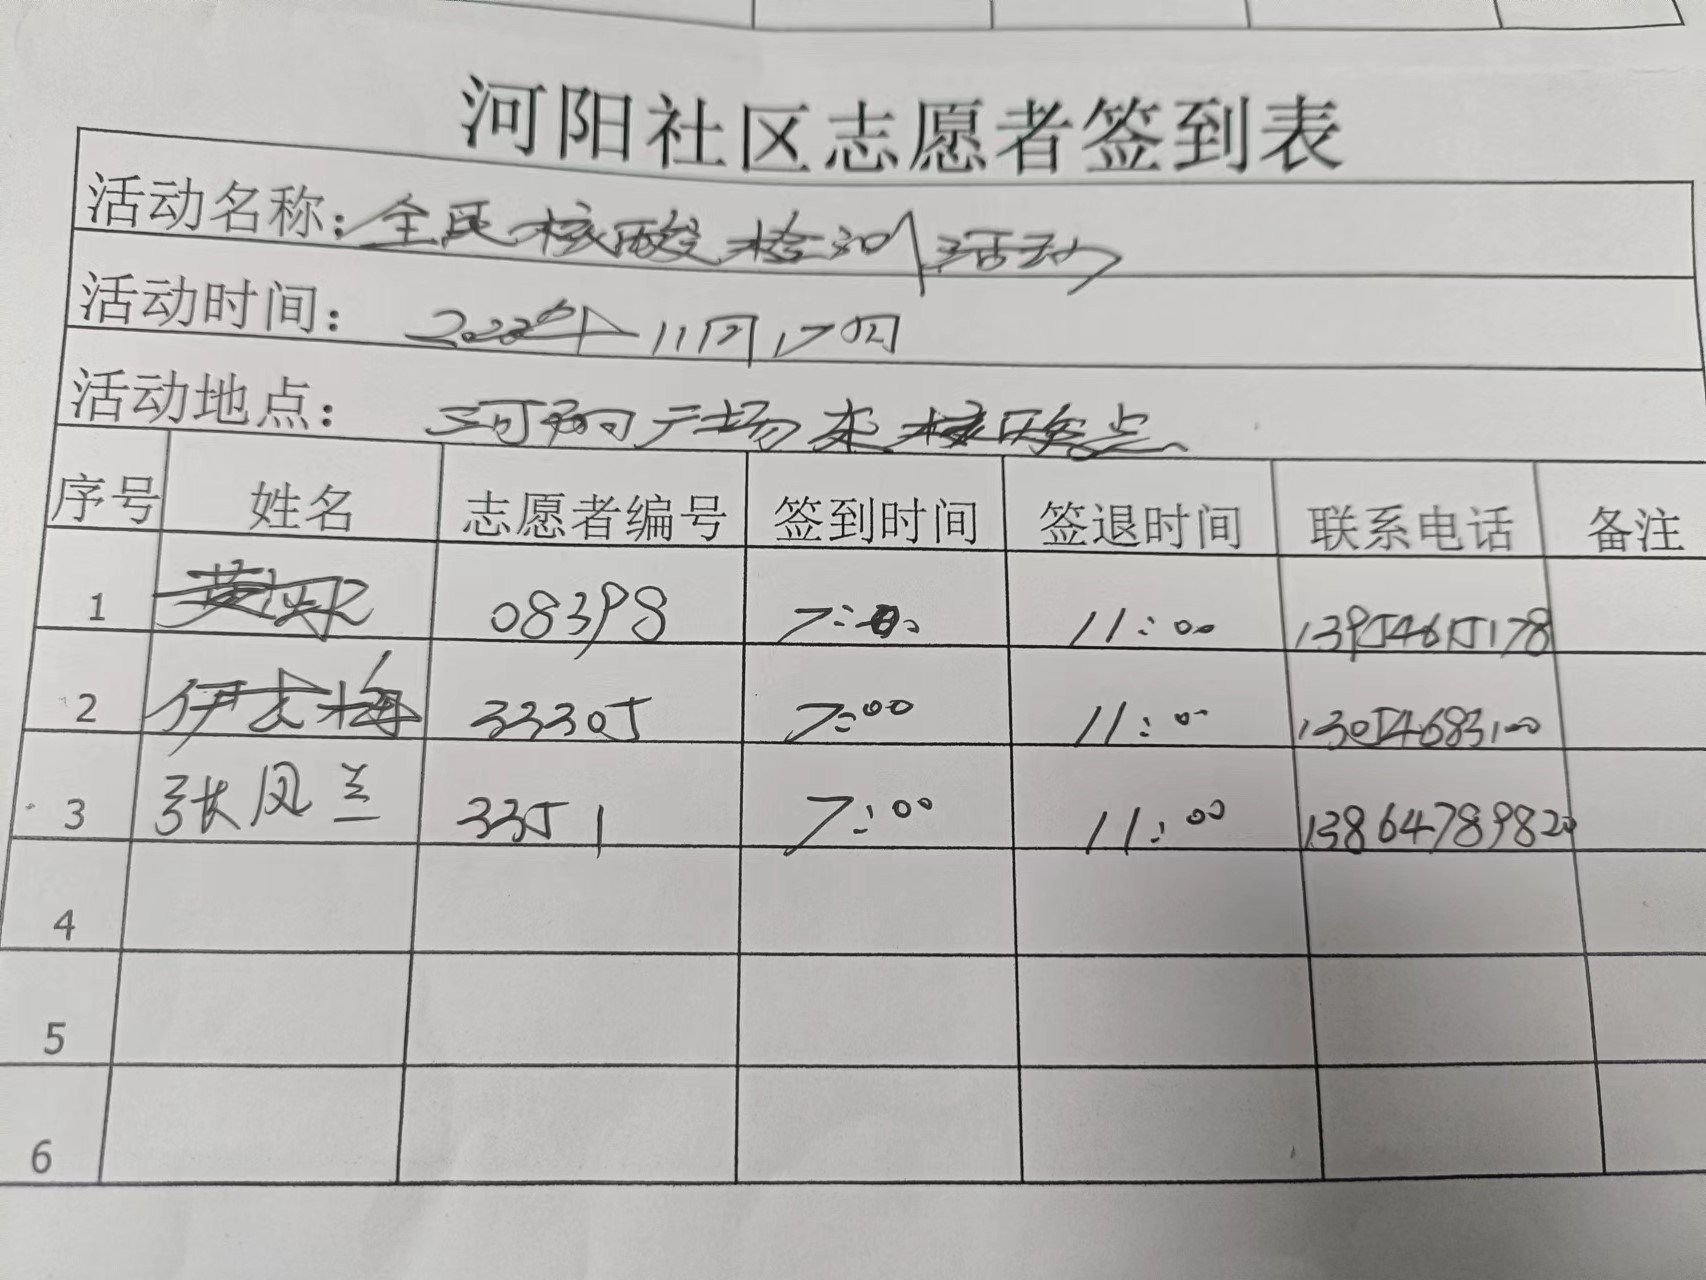 河阳社区志愿者签到表
活动名称：全民核酸检测活动
活动时间：2022年11月17日
活动地点：河阳广场东核酸点
序号 姓名 志愿者编号 签到时间 签退时间 联系电话 备注
1 08398 7:00 11:00 13954615178
2 33305 7:00 11:00 13054683100
3 张凤兰 3351 7:00 11:00 13864789820
4
5
6